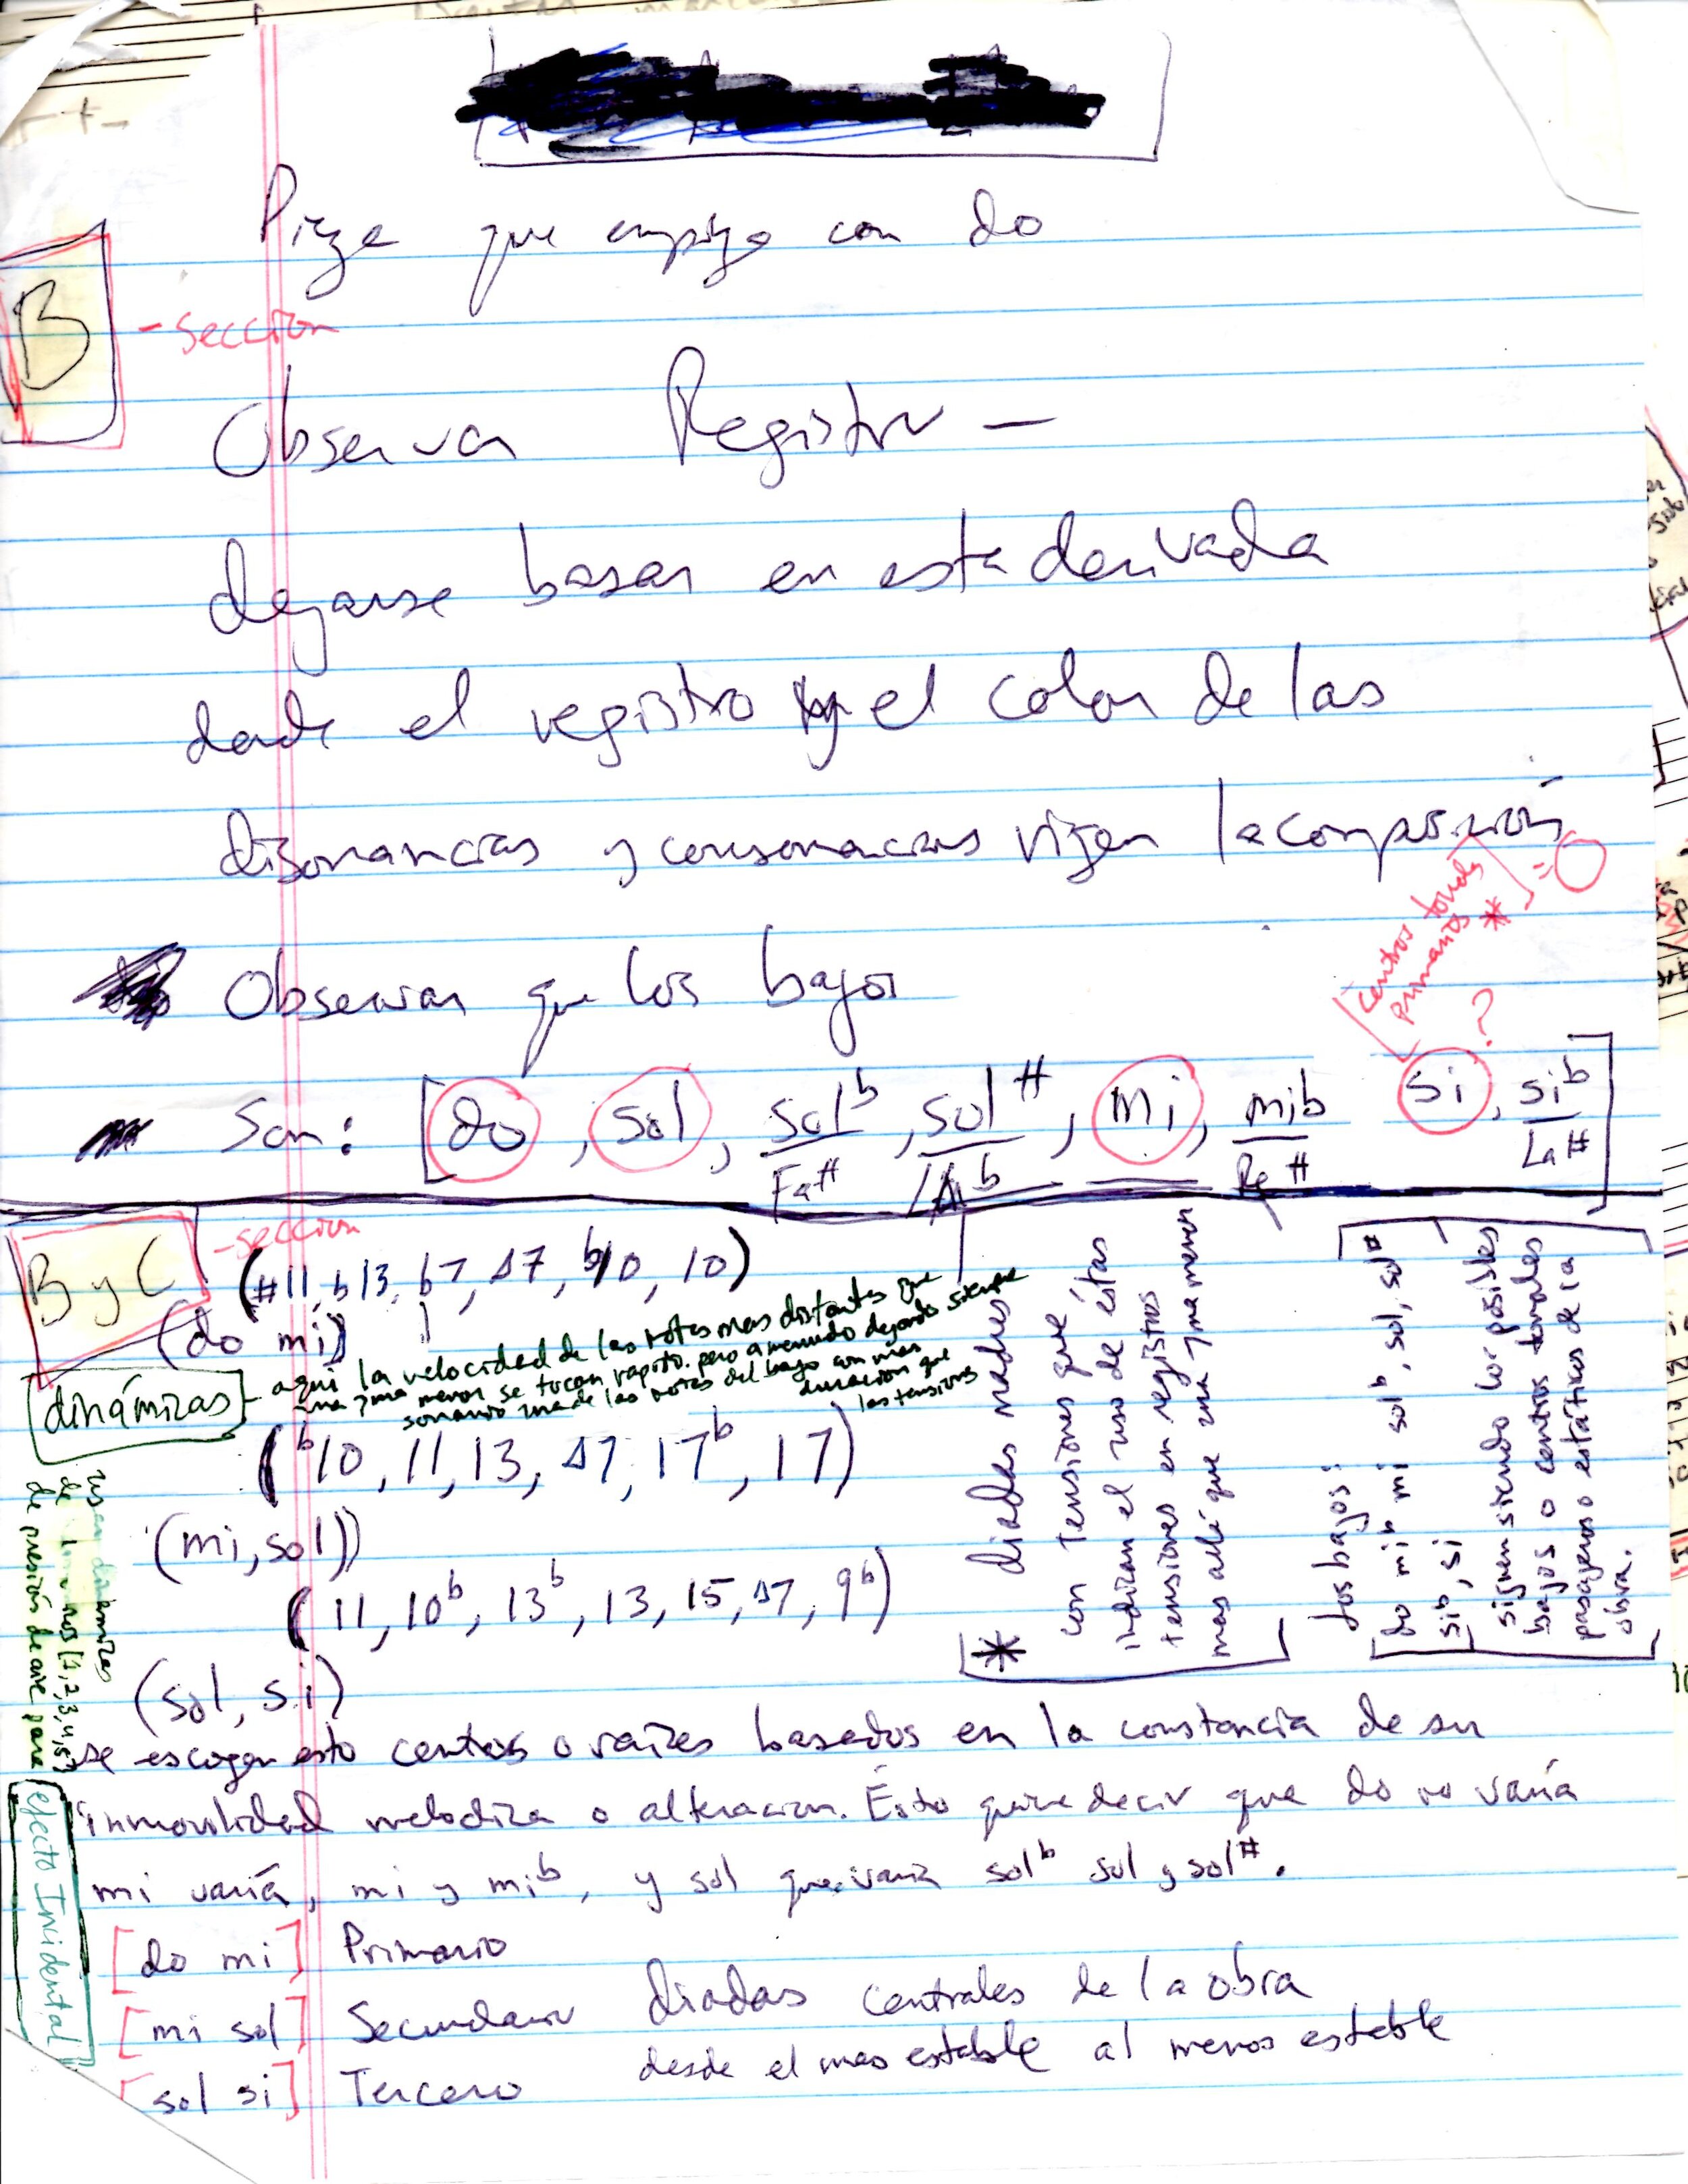 Pieza que empieza con do
B
-sección
Observar Registro —
dejarse basar en esta derivada
donde el registro y el color de las
disonancias y consonancias rigen la composición
[centros tonales
primarios *] = O
Observar que los bajos
?
Son: [do, sol, sol b, sol #, mi, mi b si, si b
Fa# La b Re # La #]
B y C
-sección
(#11, b13, b7, Δ7, b10, 10)
(do mi)
dinámicas - aquí la velocidad de las notas mas distantes que
una 7ma menor se tocan rapito. pero a menudo dejando siempre
sonando una de las notas del bajo con mas
duración que
las tensiones
(b10, 11, 13, Δ7, 17b, 17)
(mi, sol)
(11, 10b, 13b, 13, 15, Δ7, 9b)
(sol, si)
* diadas madres
con tensiones que
indican el uso de éstas
tensiones en registros
mas allá que una 7ma menor
Los bajos:
do mi b mi sol b, sol, sol#
si b, si
siguen siendo los posibles
bajos o centros tonales
pasajeros o estáticos de la
obra.
usar dinámicas
de [1,2,3,4,5]
de presión de aire para
efecto Incidental
se escogen esto centros o raíces basados en la constancia de su
inmovilidad melodica o alteracion. Ésto quiere decir que do no varía
mi varía, mi y mi b, y sol que varía sol b sol y sol #.
[do mi] Primario
[mi sol] Secundario diadas centrales de la obra
[sol si] Tercero desde el mas estable al menos estable